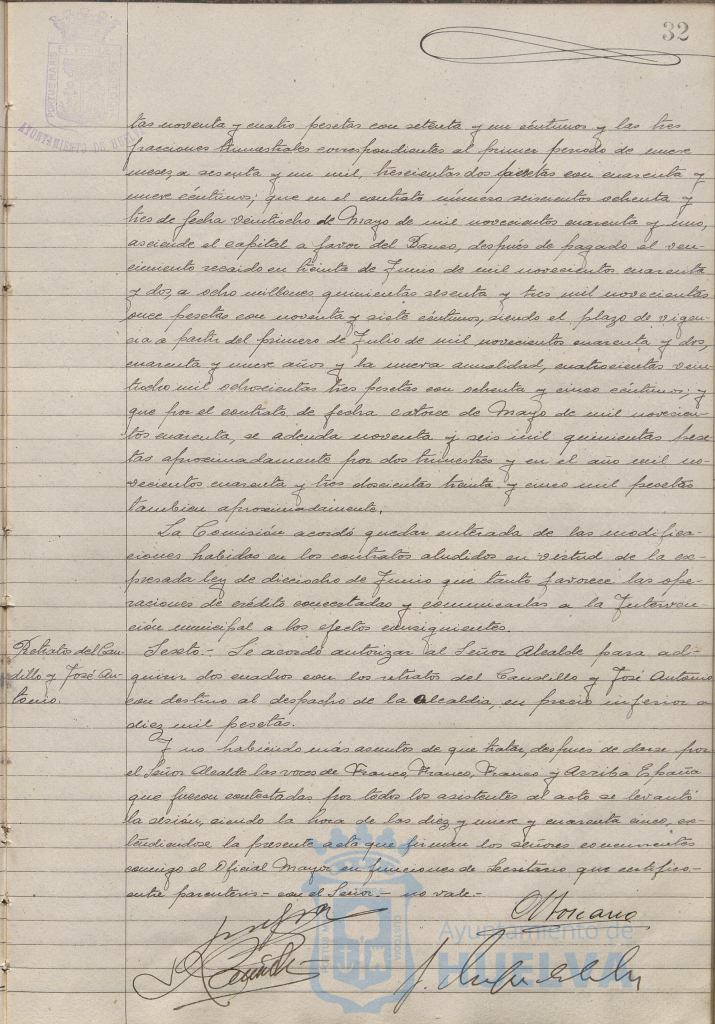 32
AYUNTAMIENTO DE HUELVA
tas noventa y cuatro pesetas con setenta y un céntimos y las tres
fracciones trimestrales correspondientes al primer periodo de nueve
meses a sesenta y un mil, trescientas dos pesetas con cuarenta y
nueve céntimos; que en el contrato número seiscientos ochenta y
tres de fecha veintiocho de Mayo de mil novecientos cuarenta y uno,
asciende el capital a favor del Banco, después de pagado el ven-
cimiento recaido en treinta de Junio de mil novecientos cuarenta
y dos, a ocho millones quinientas sesenta y tres mil novecientas
once pesetas con noventa y siete céntimos, siendo el plazo de vigen-
cia a partir del primero de Julio de mil novecientos cuarenta y dos,
cuarenta y nueve años y la nueva anualidad, cuatrocientas vein-
tiocho mil ochocientas tres pesetas con ochenta y cinco céntimos; y
que por el contrato de fecha catorce de Mayo de mil novecien-
tos cuarenta, se adeuda noventa y seis mil quinientas pese-
tas aproximadamente por dos trimestres y en el año mil no-
vecientos cuarenta y tres doscientas treinta y cinco mil pesetas
tambien aproximadamente.
La Comisión acordó quedar enterada de las modifica-
ciones habidas en los contratos aludidos en virtud de la ex-
presada ley de dieciocho de Junio que tanto favorece las ope-
raciones de crédito concertadas y comunicarlas a la Interven-
ción municipal a los efectos consiguientes.
Retratos del Cau-
dillo y José An-
tonio.
Sexto.- Se acordó autorizar al Señor Alcalde para ad-
quirir dos cuadros con los retratos del Caudillo y José Antonio
con destino al despacho de la Alcaldia, en precio inferior a
diez mil pesetas.
Y no habiendo más asuntos de que tratar, despues de darse por
el Señor Alcalde las voces de Franco, Franco, Franco y Arriba España
que fueron contestadas por todos los asistentes al acto se levantó
la sesión, siendo la hora de las diez y nueve y cuarenta cinco, ex-
tendiendose la presente acta que firman los señores concurrentes
conmigo el Oficial Mayor en funciones de Secretario que certifico.-
entre parentesis - con el Señor.- no vale.-
Ayuntamiento de
HUELVA